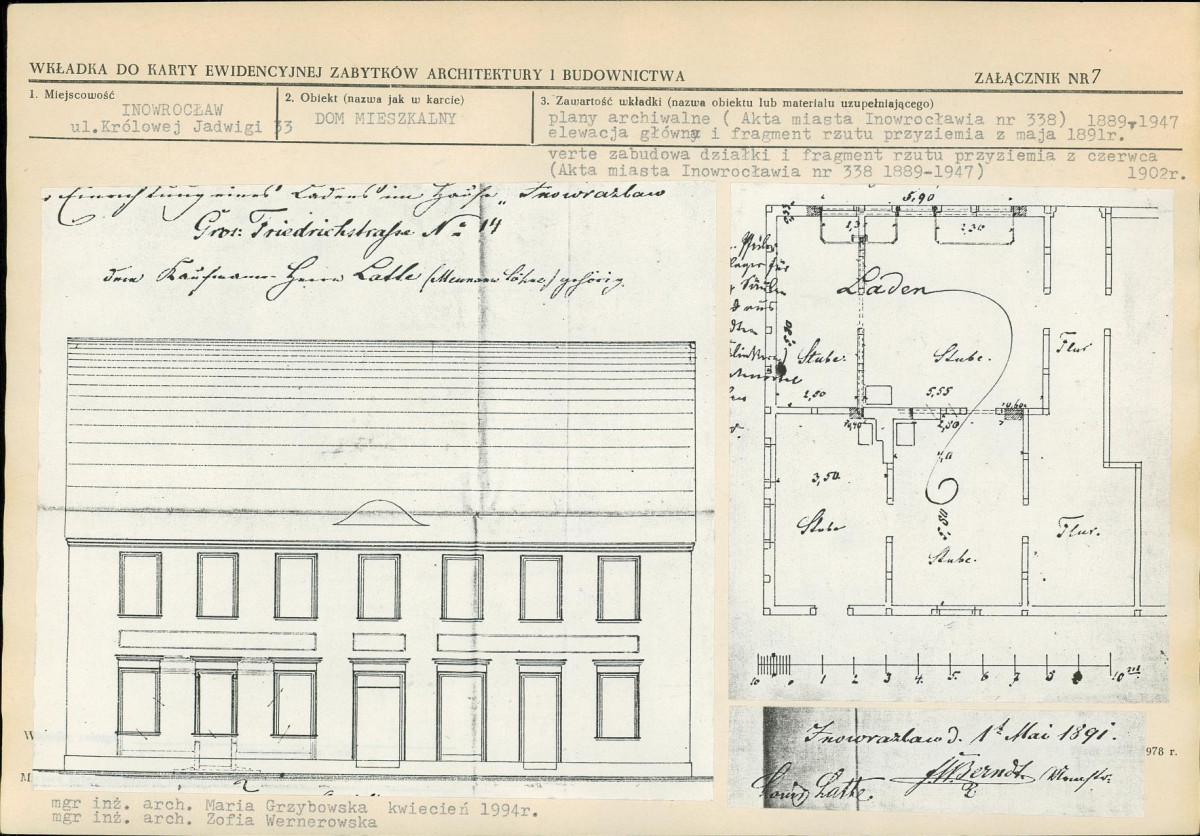 WKŁADKA DO KARTY EWIDENCYJNEJ ZABYTKÓW ARCHITEKTURY I BUDOWNICTWA
ZAŁĄCZNIK NR 7
1. Miejscowość
INOWROCŁAW
ul.Królowej Jadwigi 33
2. Obiekt (nazwa jak w karcie)
DOM MIESZKALNY
3. Zawartość wkładki (nazwa obiektu lub materiału uzupełniającego)
plany archiwalne ( Akta miasta Inowrocławia nr 338) 1889-1947
elewacja główna i fragment rzutu przyziemia z maja 1891r.
verte zabudowa działki i fragment rzutu przyziemia z czerwca
(Akta miasta Inowrocławia nr 338 1889-1947) 1902r.
Einrichtung eines Ladens im Hause Inowrazlaw
Gros: Friedrichstrasse No 14
dem Kaufmann Herrn Latte gehörig.
5,90
1,3
2,30
Laden
Stube.
Stube.
Flur
5,55
3,50
Stube
Stube.
Flur.
10 0 1 2 3 4 5 6 7 8 10
Inowrazlaw d. 1t Mai 1891.
Louis Latte.
Berndt
978 r.
mgr inż. arch. Maria Grzybowska kwiecień 1994r.
mgr inż. arch. Zofia Wernerowska